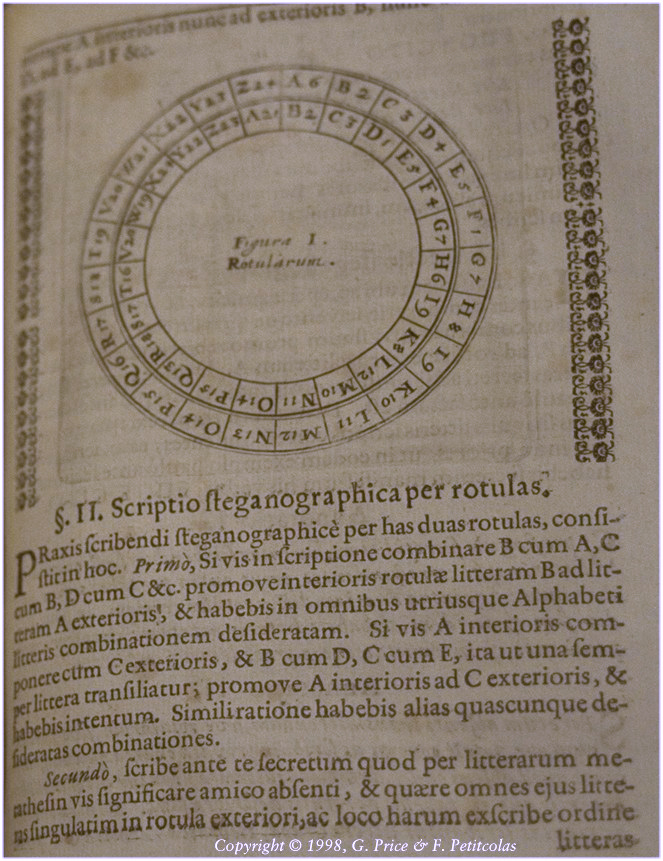 A interioris nunc ad exterioris B,
D, ad E, ad F &c.
A 6 B 2 C 3 D 4 E 5 F 1 G 7 H 8 I 9 K 10 L 11 M 12 N 13 O 14 P 15 Q 16 R 17 S 18 T 19 V 20 W 21 X 22 Y 23 Z 24
B 2 C 3 D 1 E 5 F 4 G 7 H 6 I 9 K 8 L 12 M 10 N 11 O 14 P 15 Q 13 R 18 S 17 T 16 V 20 W 19 X 24 Y 22 Z 23 A 21
Figura I.
Rotularum.
§. II. Scriptio ſteganographica per rotulas.
PRaxis ſcribendi ſteganographicè per has duas rotulas, conſi-
ſtit in hoc. Primò, Si vis in ſcriptione combinare B cum A, C
cum B, D cum C &c. promove interioris rotulæ litteram B ad lit-
teram A exterioris, & habebis in omnibus utriusque Alphabeti
litteris combinationem deſideratam. Si vis A interioris com-
ponere cum C exterioris, & B cum D, C cum E, ita ut una ſem-
per littera tranſiliatur; promove A interioris ad C exterioris, &
habebis intentum. Simili ratione habebis alias quascunque de-
ſideratas combinationes.
Secundò, ſcribe ante te ſecretum quod per litterarum me-
tatheſin vis ſignificare amico abſenti, & quære omnes ejus litte-
ras ſingulatim in rotula exteriori, ac loco harum exſcribe ordine
litteras
Copyright © 1998, G. Price & F. Petitcolas